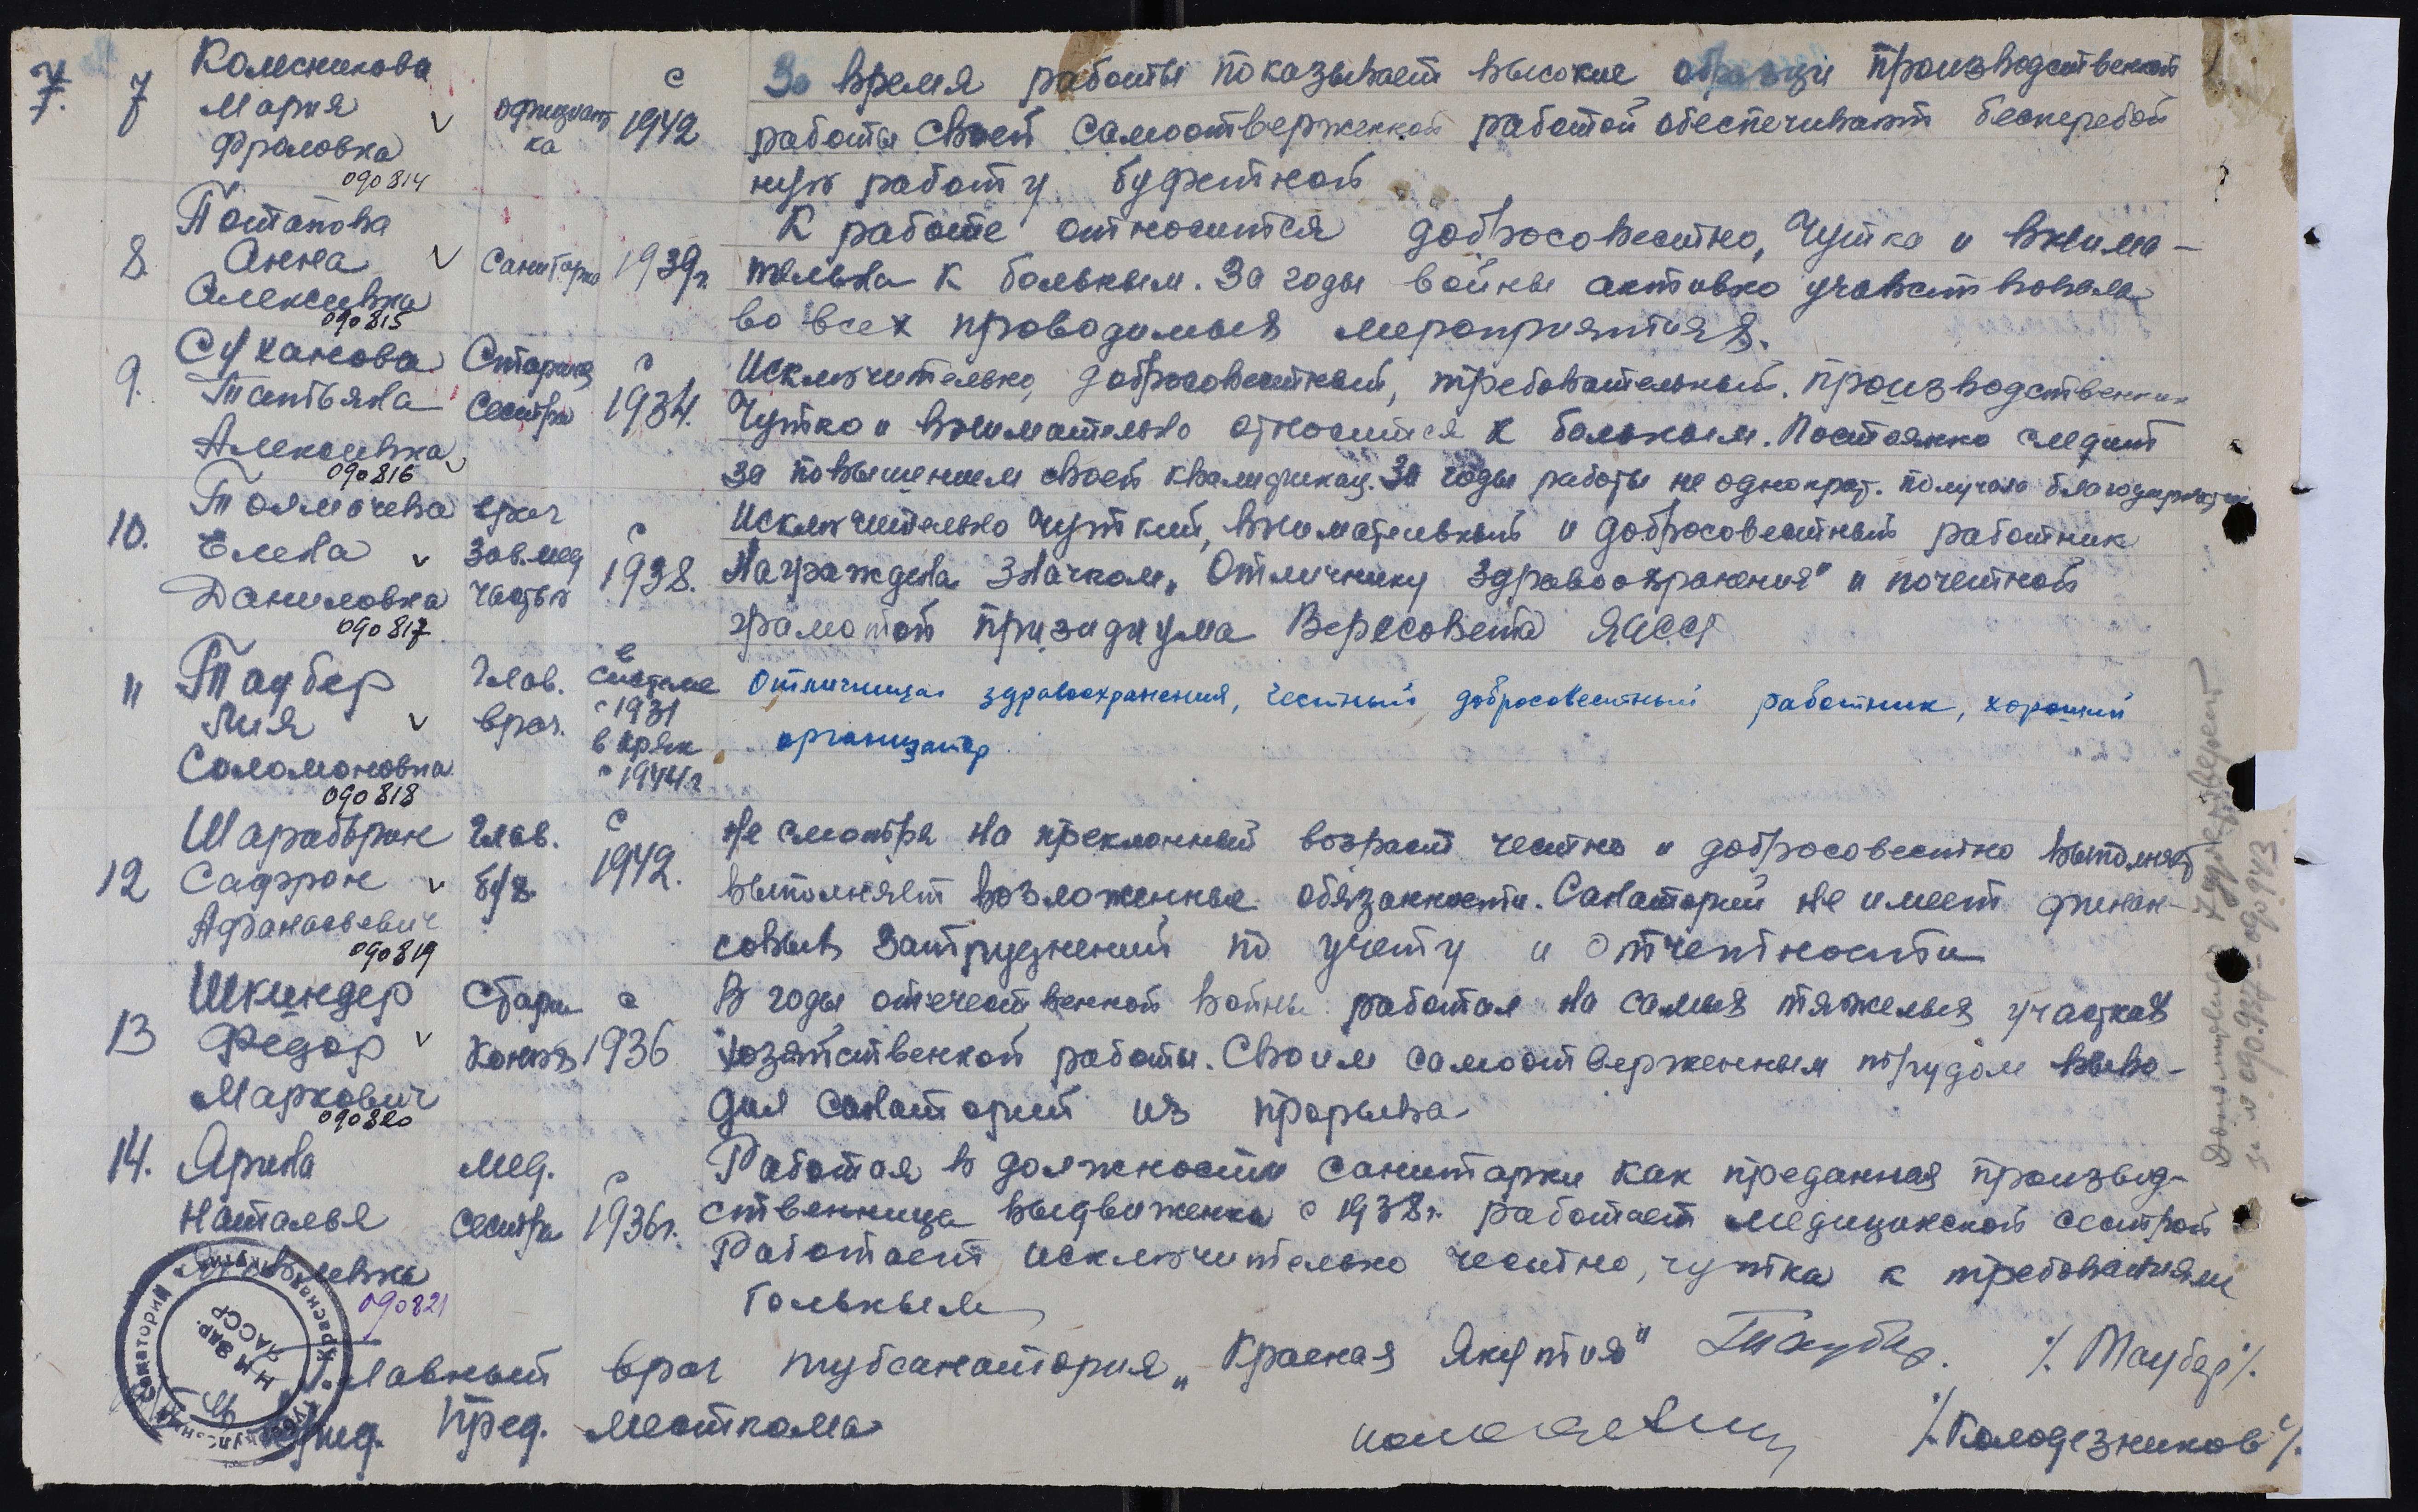 7. 7 Колесникова
Мария
Фроловна
090814
официант
ка
с
1942
За время работы показывает высокие образцы производственной
работы своей самоотверженной работой обеспечивают бесперебой
ную работу буфетной
8. Потапова
Анна
Алексеевна
090815
санитарка
1939г.
К работе относится добросовестно, чутка и внима-
тельна к больным. За годы войны активно участвовала
во всех проводимых мероприятиях.
9. Суханова
Татьяна
Алексеевна
090816
Старшая
сестра
с
1934.
Исключительно, добросовестный, требовательный. производственник
Чутко и внимательно относится к больным. Постоянно следит
за повышением своей квалификац. За годы работы не однократ. получала благодарности
10. Толмачева
Елена
Даниловна
090817
врач
зав. мед
частью
с
1938.
Исключительно чуткий, внимательный и добросовестный работник
Награждена значком „Отличнику здравоохранения" и почетной
грамотой призидиума Верхсовета ЯАССР
11 Таубер
Лия
Соломоновна
090818
Глав.
врач.
в
системе
с 1931
в кряк
с 1944г
Отличница здравоохранения, честный добросовестный работник, хороший
организатор
12 Шараборин
Сафрон
Афанасьевич
090819
Глав.
бух.
с
1942.
Не смотря на преклонный возраст честно и добросовестно выполняет
выполняет возложенные обязанности. Санаторий не имеет финан-
совых затруднений по учету и отчетности
13 Шкиндер
Федор
Маркович
090820
Старш
конюх
с
1936
В годы отечественной войны работал на самых тяжелых участках
хозяйственной работы. Своим самоотверженным трудом выво-
дил санаторий из прорыва
14. Ярина
Наталья
090821
мед.
сестра
с
1936г.
Работая в должности санитарки как преданная производ-
ственница выдвиженка с 1938г. работает медицинской сестрой
Работает исключительно честно, чутка к требованиям
больным
Главный врач тубсанатория „Красная Якутия" Таубер. /. Таубер/.
Пред. месткома
/. Колодезников/.
Н.К.Здр.
ЯАССР
090.937 – 090943